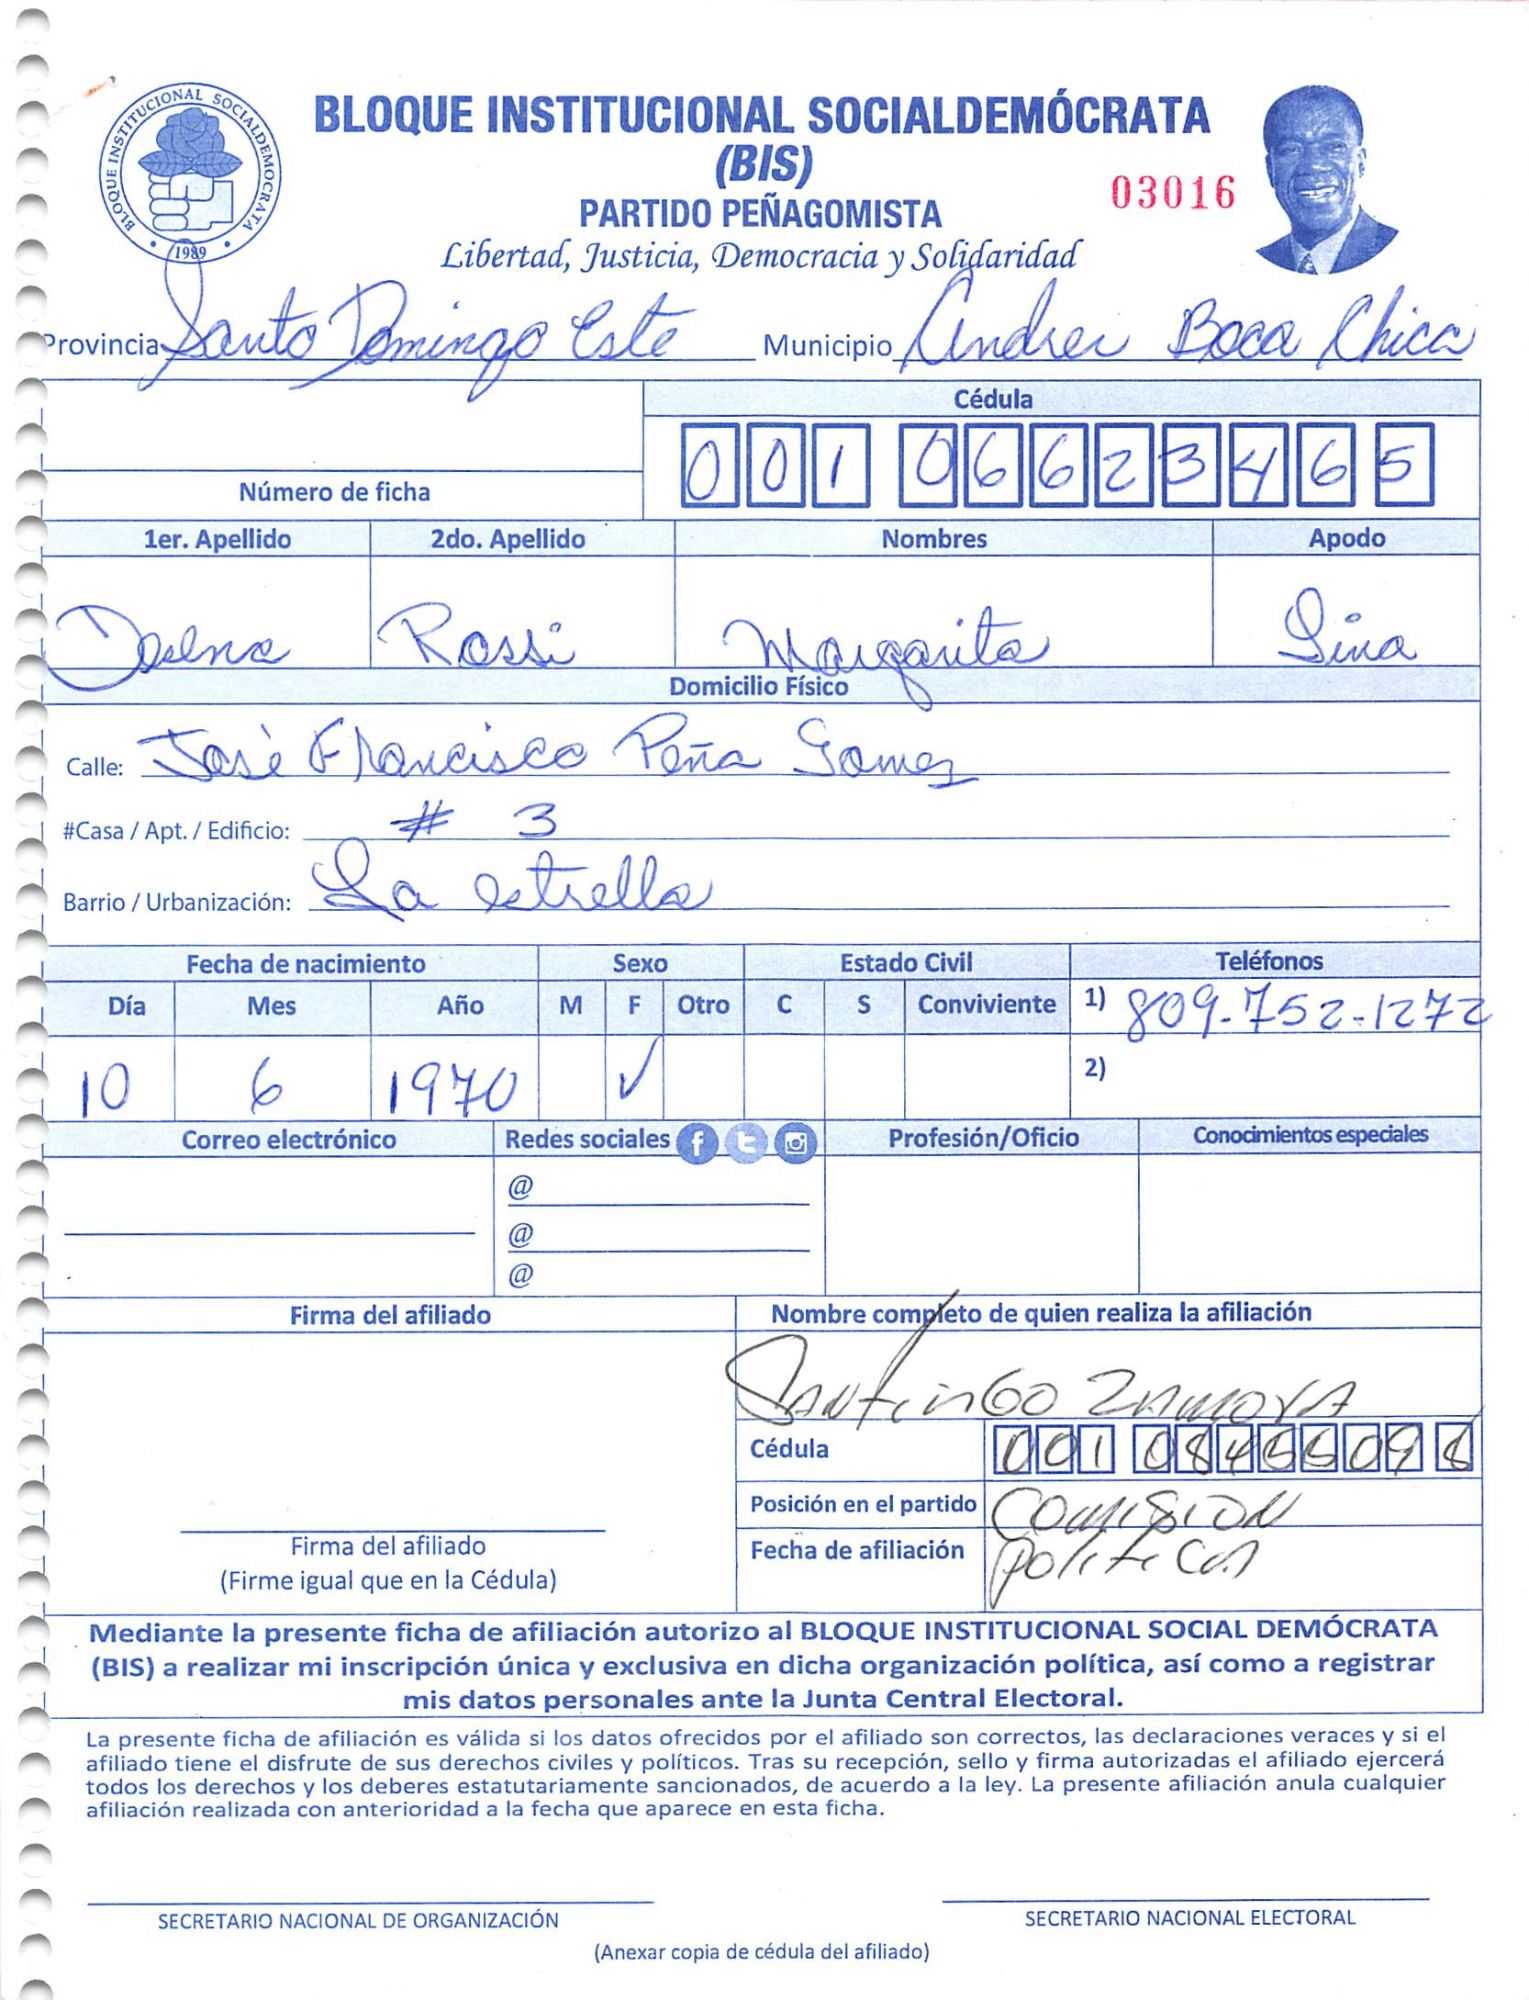 BLOQUE INSTITUCIONAL SOCIALDEMOCRATA
1989
BLOQUE INSTITUCIONAL SOCIALDEMÓCRATA
(BIS)
PARTIDO PEÑAGOMISTA
03016
Libertad, Justicia, Democracia y Solidaridad
Provincia Santo Domingo Este Municipio Andres Boca Chica
Cédula
001 0662346 5
Número de ficha
1er. Apellido 2do. Apellido Nombres Apodo
Rossi Margarita Lina
Domicilio Físico
Calle: José Francisco Peña Gomez
#Casa / Apt. / Edificio: # 3
Barrio / Urbanización: La estrella
Fecha de nacimiento Sexo Estado Civil Teléfonos
Día Mes Año M F Otro C S Conviviente 1) 809-752-1272
10 6 1970 ✓ 2)
Correo electrónico Redes sociales f t Profesión/Oficio Conocimientos especiales
@
@
@
Firma del afiliado Nombre completo de quien realiza la afiliación
SANTIAGO ZAMORA
Cédula 001
Posición en el partido COMISION
Fecha de afiliación POLITICA
Firma del afiliado
(Firme igual que en la Cédula)
Mediante la presente ficha de afiliación autorizo al BLOQUE INSTITUCIONAL SOCIAL DEMÓCRATA
(BIS) a realizar mi inscripción única y exclusiva en dicha organización política, así como a registrar
mis datos personales ante la Junta Central Electoral.
La presente ficha de afiliación es válida si los datos ofrecidos por el afiliado son correctos, las declaraciones veraces y si el
afiliado tiene el disfrute de sus derechos civiles y políticos. Tras su recepción, sello y firma autorizadas el afiliado ejercerá
todos los derechos y los deberes estatutariamente sancionados, de acuerdo a la ley. La presente afiliación anula cualquier
afiliación realizada con anterioridad a la fecha que aparece en esta ficha.
SECRETARIO NACIONAL DE ORGANIZACIÓN SECRETARIO NACIONAL ELECTORAL
(Anexar copia de cédula del afiliado)